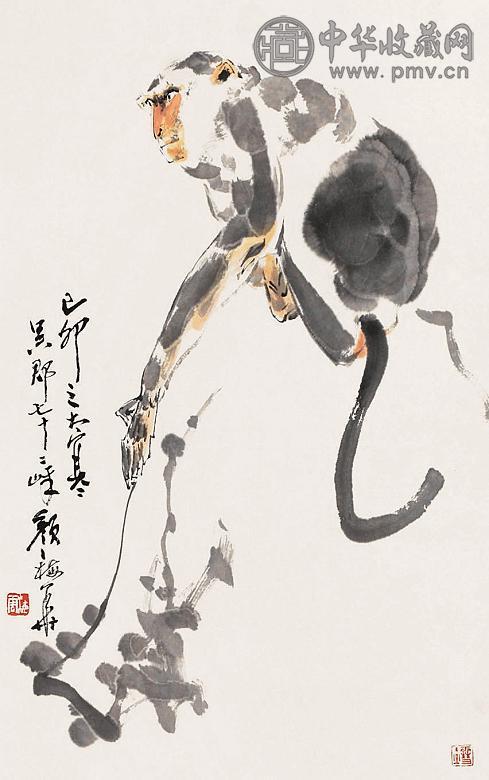 中华收藏网
www.pmv.cn
己卯之大寒
吴郡七十二峰颜梅华